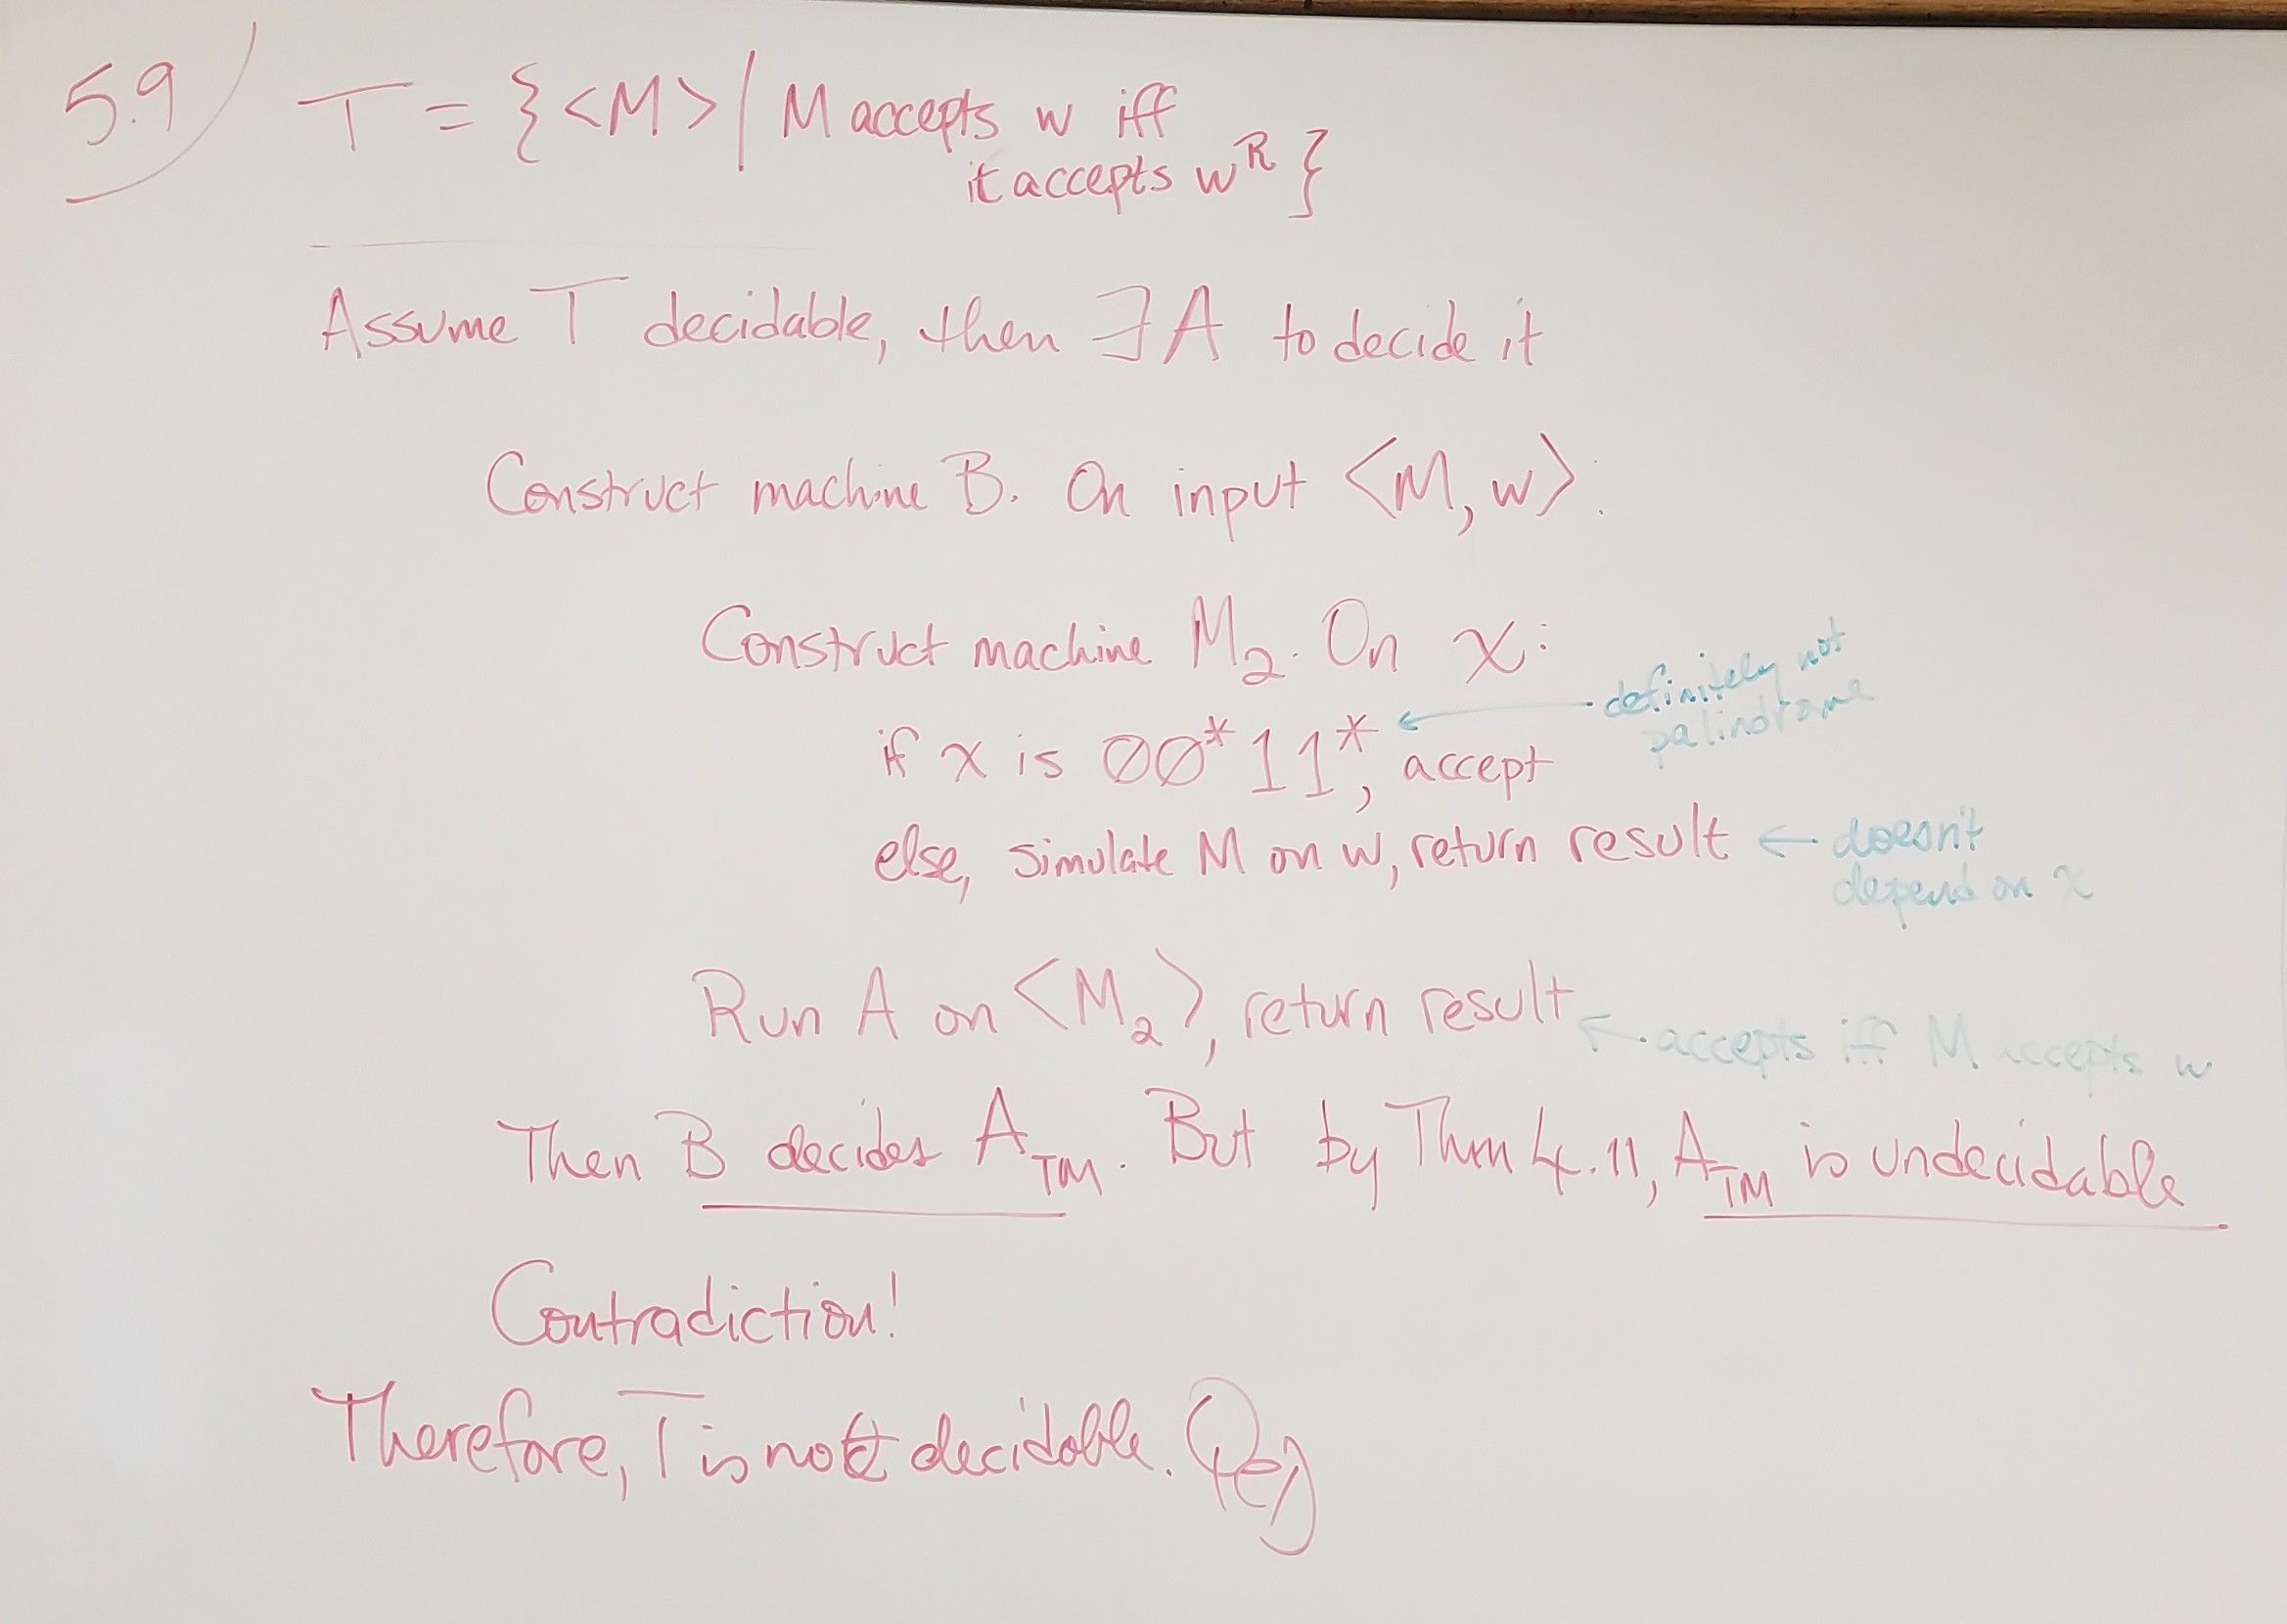 5.9) T = {<M> | M accepts w iff
it accepts w^R}
Assume T decidable, then ∃ A to decide it
Construct machine B. On input <M, w>:
Construct machine M₂. On x:
definitely not
palindrome
if x is 00*11*, accept
else, simulate M on w, return result ← doesn't
depend on x
Run A on <M₂>, return result ← accepts iff M accepts w
Then B decides A_TM. But by Thm 4.11, A_TM is undecidable
Contradiction!
Therefore, T is not decidable. Qed